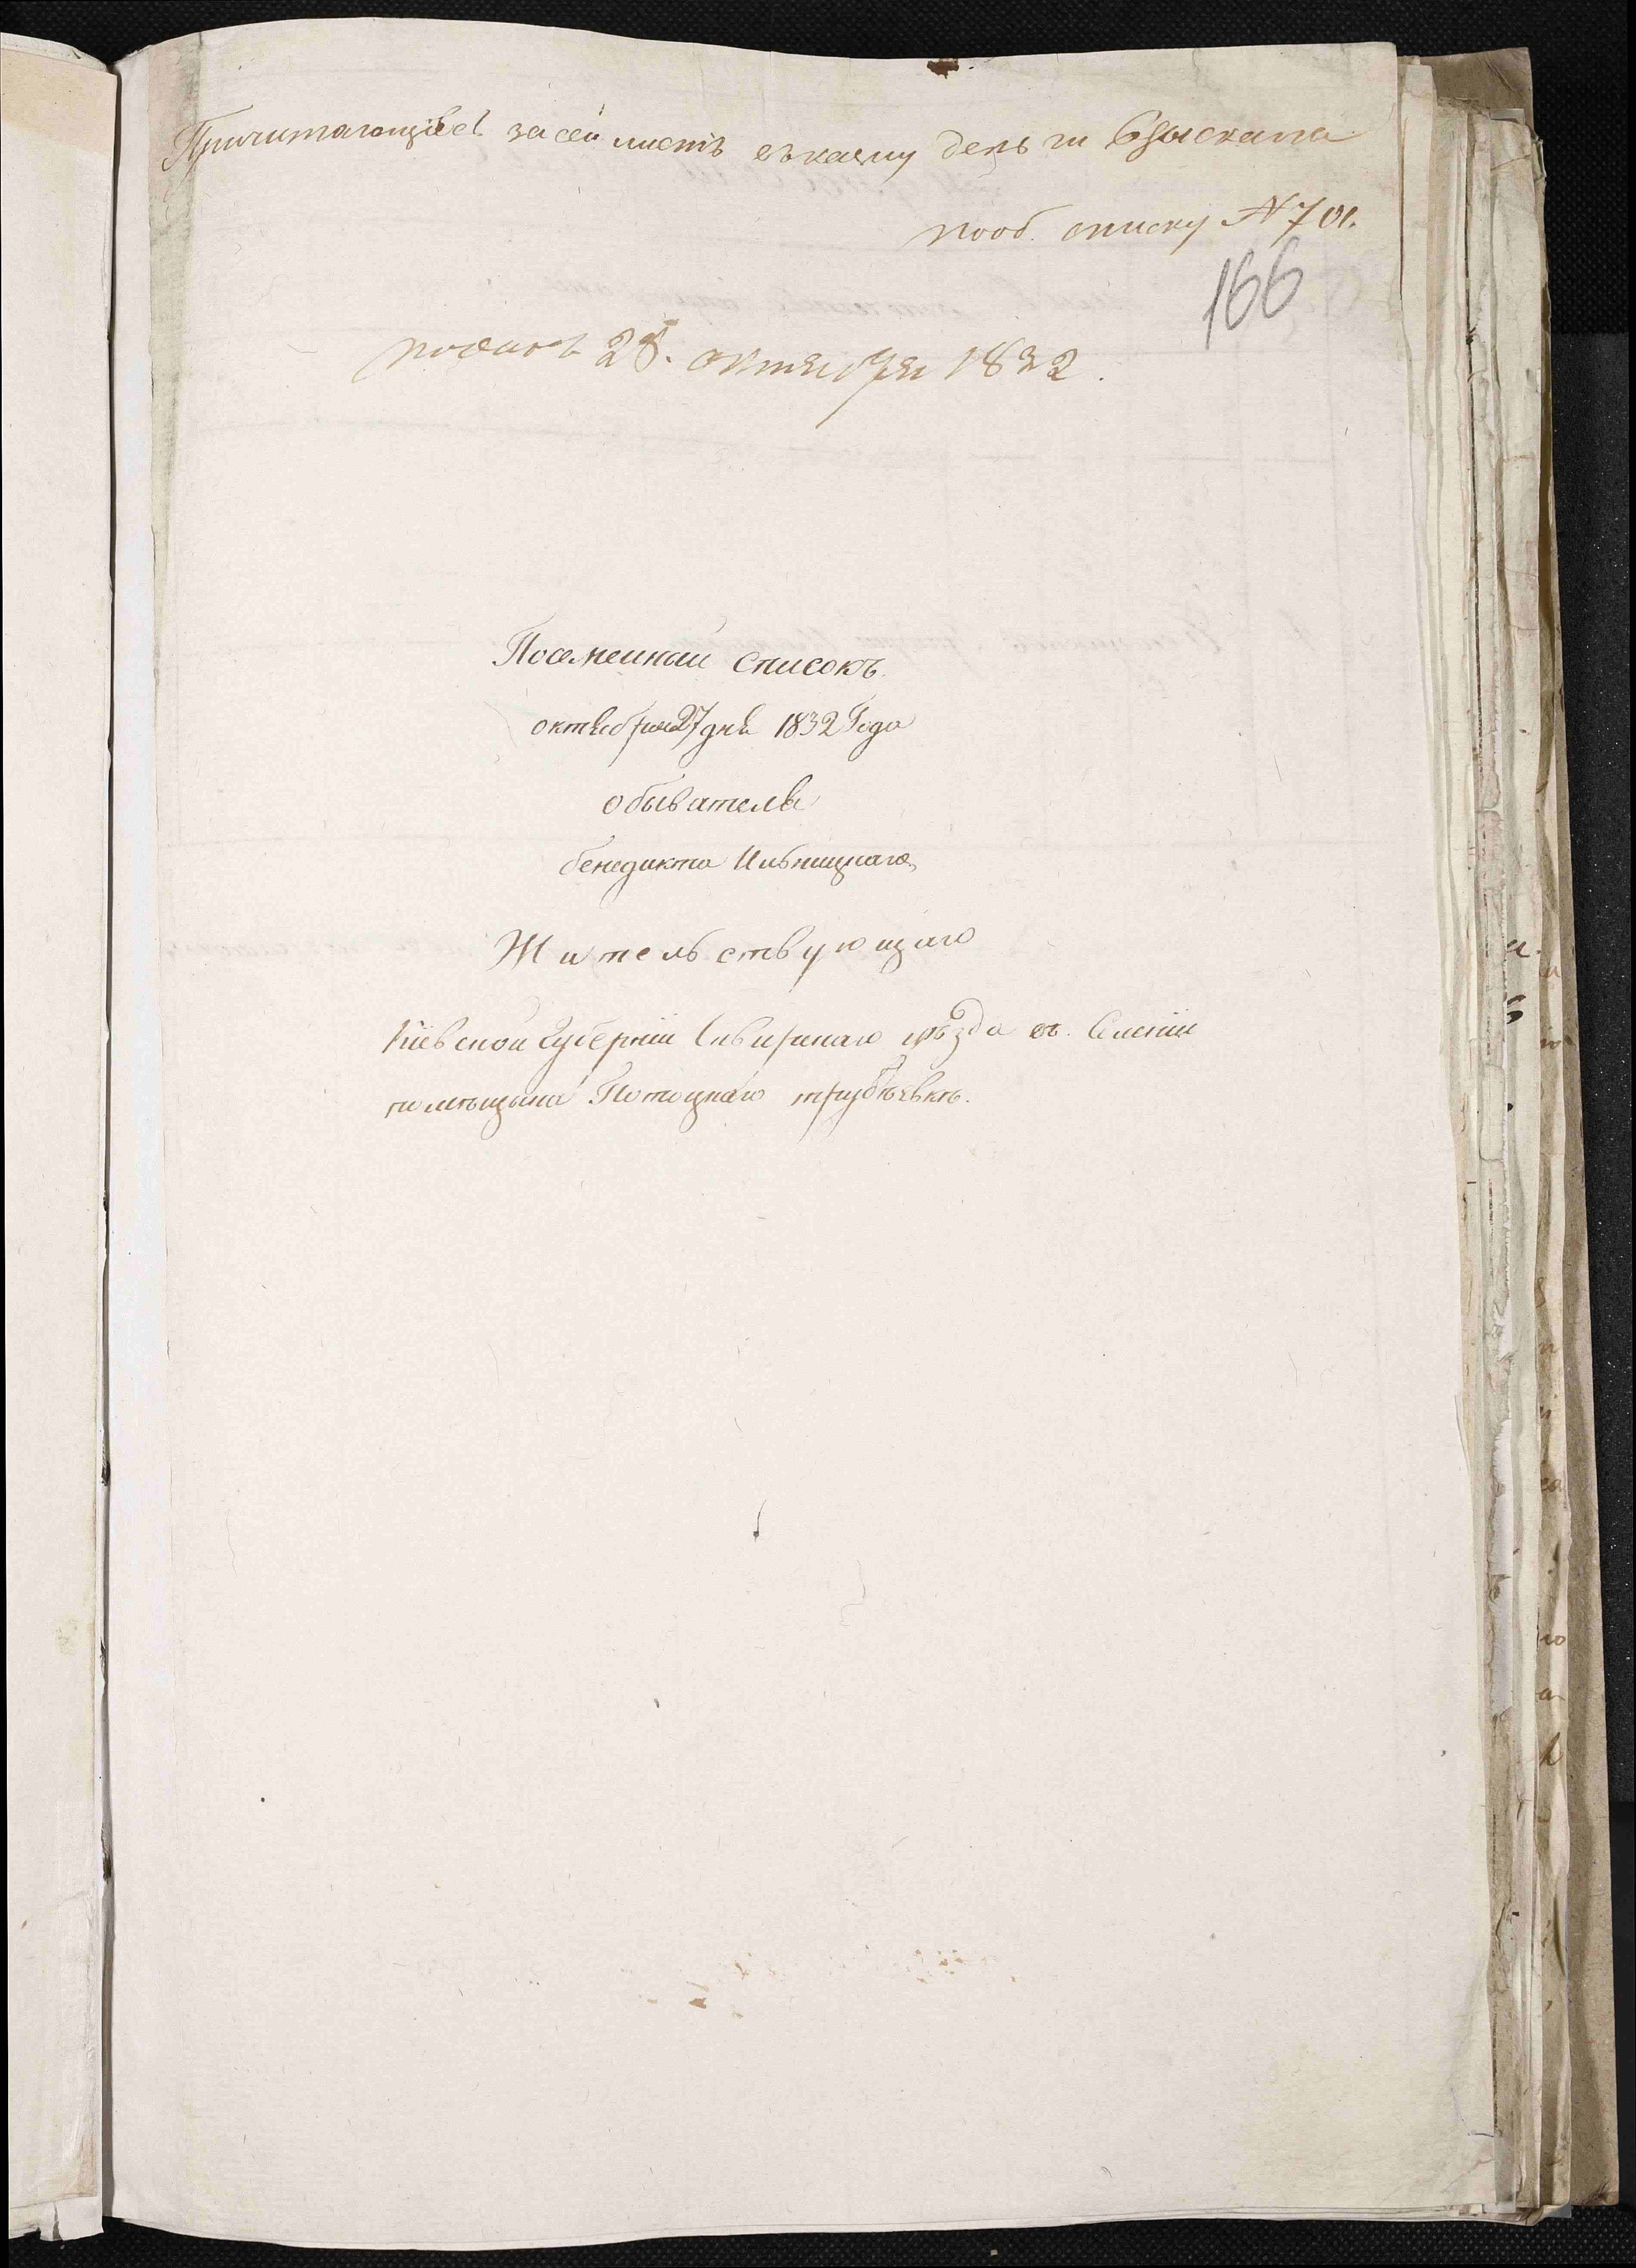 Причитающiесъ за сеи листъ въ казну деньги взысканы
пооб. списку №701.
166
подано 28. октября 1832.
Посемейныи списокъ
октября 27 дня 1832 Года
обывателя
бенедикта Ильницкаго
Жительствующаго
Кіевской Губерніи Сквирскаго уѣзда въ селеніи
помѣщика Потоцкаго трубѣевкѣ.